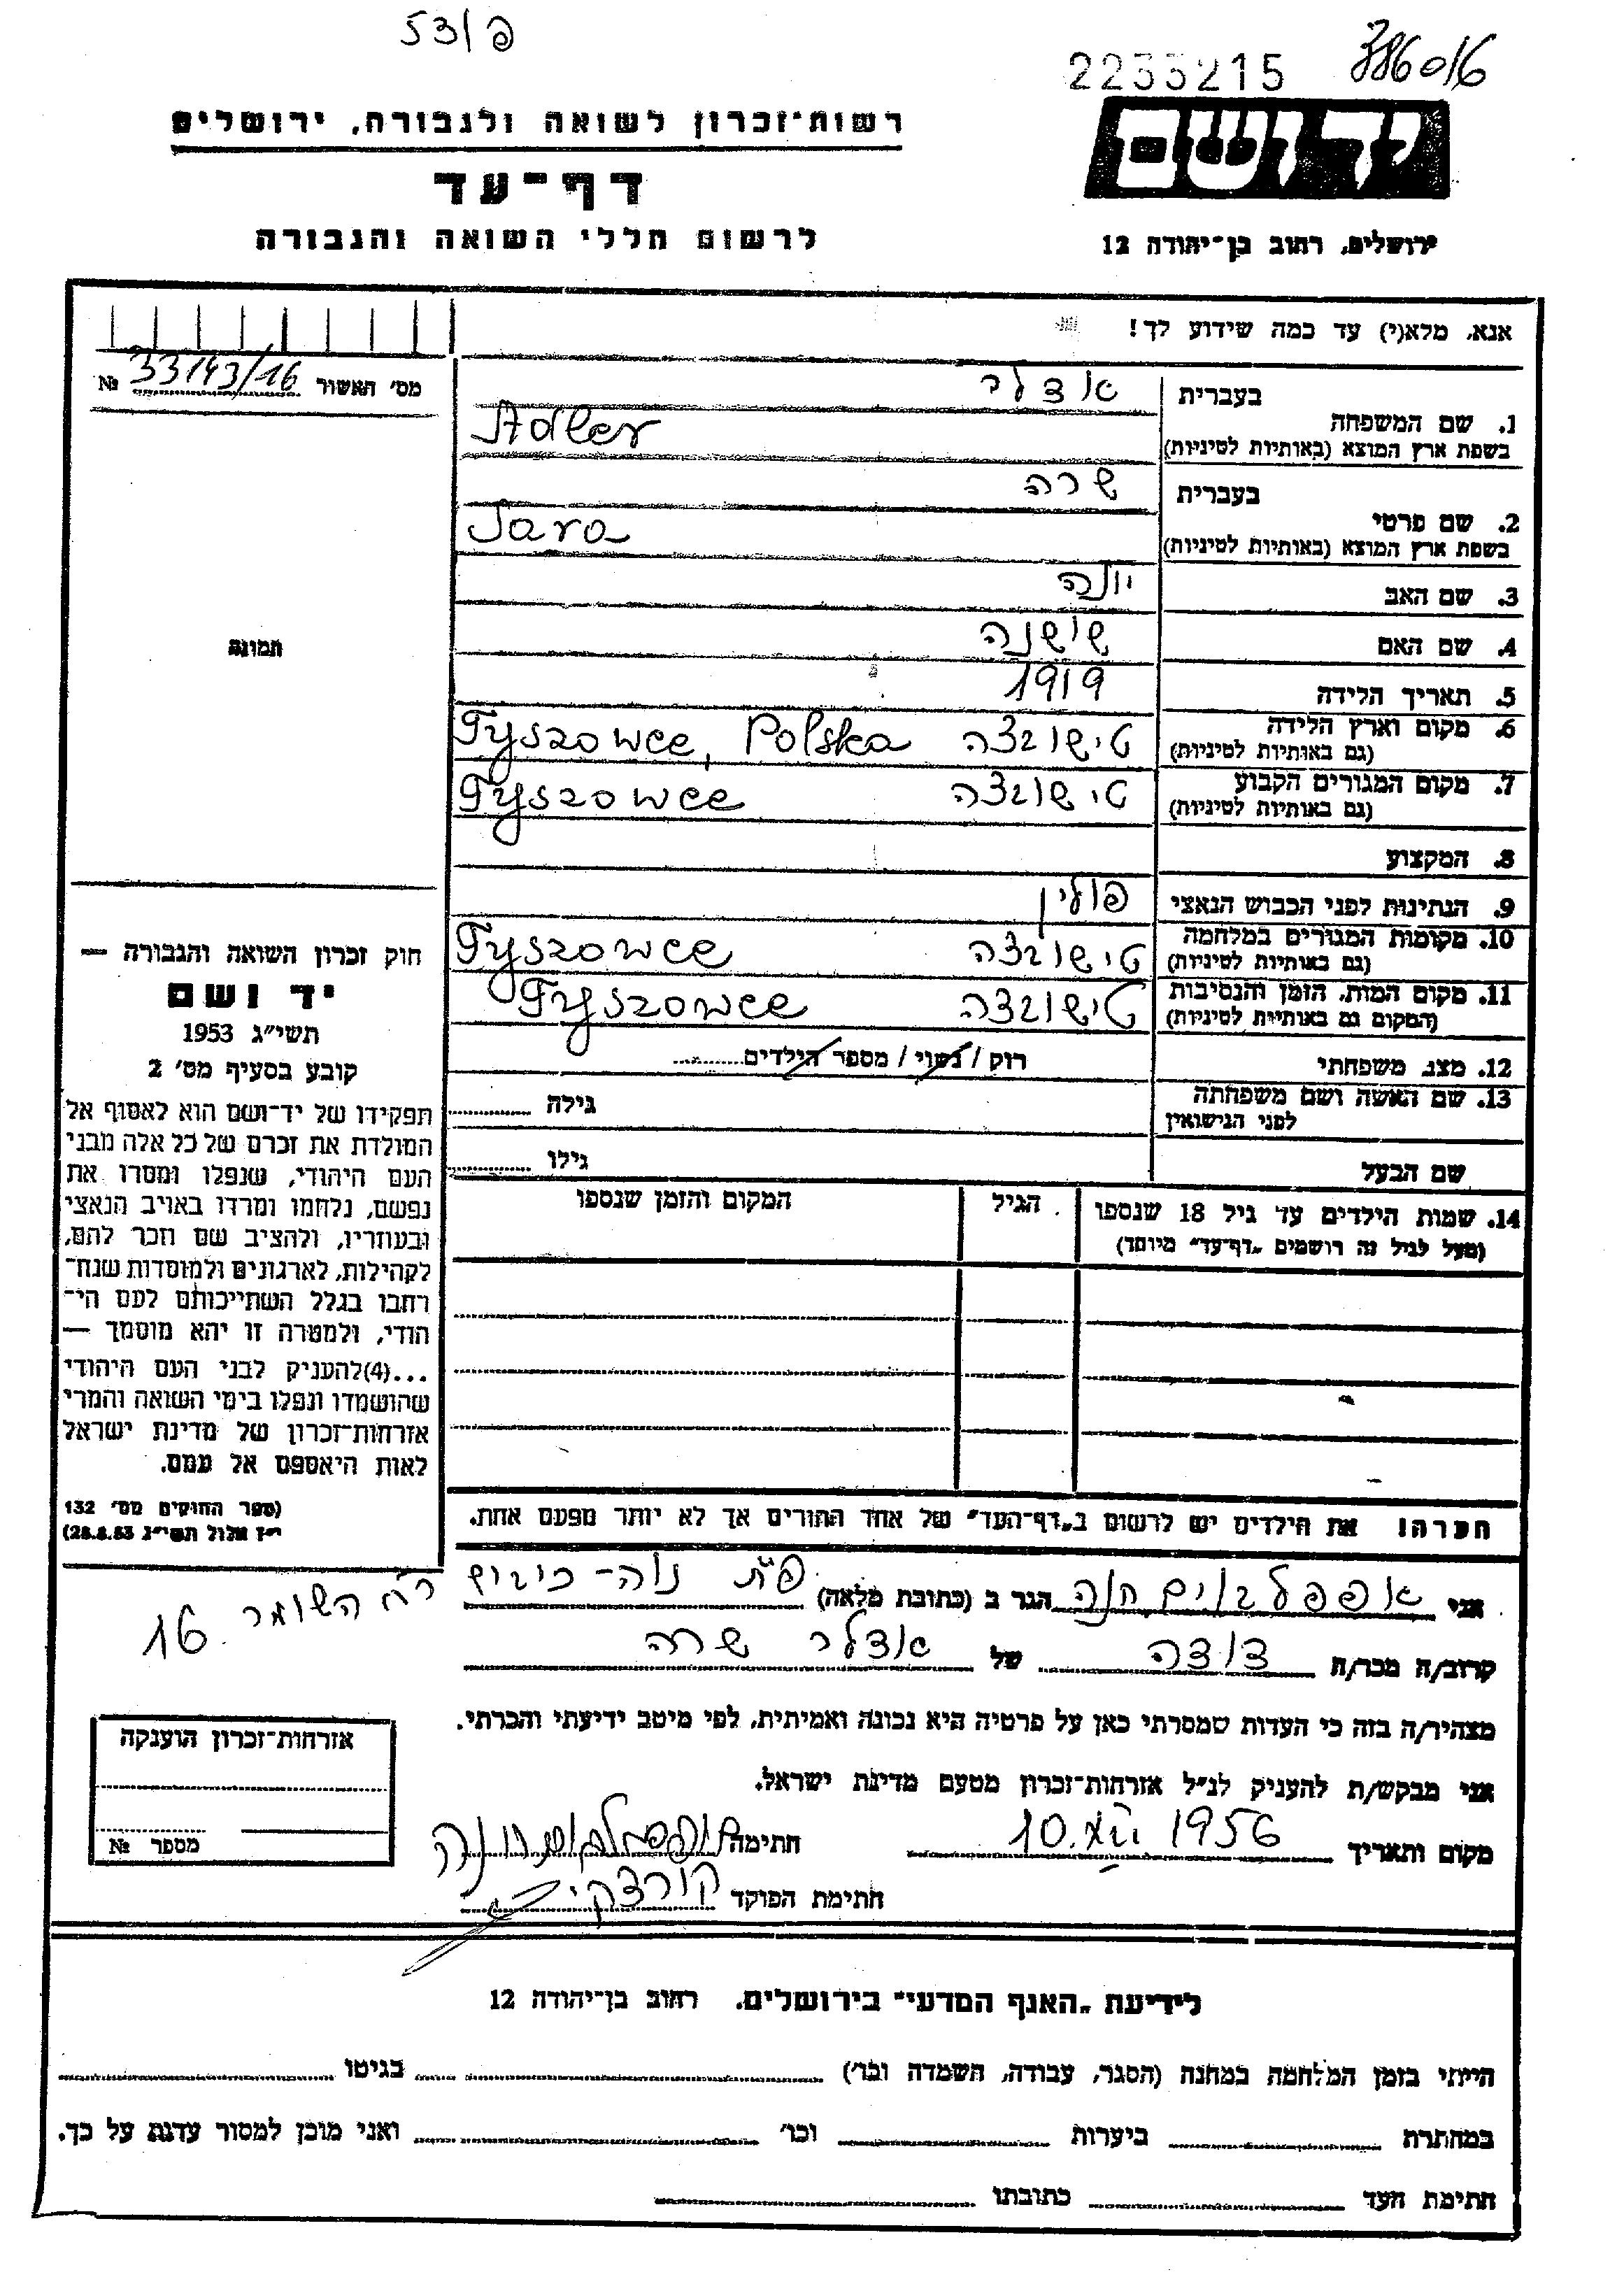 פ/53
2233215 386016
רשות־זכרון לשואה ולגבורה, ירושלים
יד ושם
דף־עד
לרשום חללי השואה והגבורה
ירושלים, רחוב בן־יהודה 12
אנא, מלא(י) עד כמה שידוע לך!
מס׳ האשור 33143/16 №
בעברית אדלר
1. שם המשפחה
בשפת ארץ המוצא (באותיות לטיניות) Adler
בעברית שרה
2. שם פרטי
בשפת ארץ המוצא (באותיות לטיניות) Sara
3. שם האב יונה
4. שם האם שושנה
5. תאריך הלידה 1919
6. מקום וארץ הלידה
(גם באותיות לטיניות) טישובצה Tyszowce, Polska
7. מקום המגורים הקבוע
(גם באותיות לטיניות) טישובצה Tyszowce
8. המקצוע
9. הנתינות לפני הכבוש הנאצי פולין
10. מקומות המגורים במלחמה
(גם באותיות לטיניות) טישובצה Tyszowce
11. מקום המות, הזמן והנסיבות
(המקום גם באותיות לטיניות) טישובצה Tyszowce
12. מצב משפחתי רוק / נשוי / מספר הילדים
13. שם האשה ושם משפחתה גילה
לפני הנישואין
שם הבעל גילו
14. שמות הילדים עד גיל 18 שנספו הגיל המקום והזמן שנספו
(מעל לגיל זה רושמים „דף־עד״ מיוחד)
הערה! את הילדים יש לרשום ב„דף־העד״ של אחד ההורים אך לא יותר מפעם אחת.
תמונה
חוק זכרון השואה והגבורה —
יד ושם
תשי״ג 1953
קובע בסעיף מס׳ 2
תפקידו של יד־ושם הוא לאסוף אל
המולדת את זכרם של כל אלה מבני
העם היהודי, שנפלו ומסרו את
נפשם, נלחמו ומרדו באויב הנאצי
ובעוזריו, ולהציב שם וזכר להם,
לקהילות, לארגונים ולמוסדות שנח־
רחבו בגלל השתייכותם לעם הי־
הודי, ולמטרה זו יהא מוסמך —
...(4)להעניק לבני העם היהודי
שהושמדו ונפלו בימי השואה והמרי
אזרחות־זכרון של מדינת ישראל
לאות היאספם אל עמם.
(ספר החוקים מס׳ 132
י״ז אלול תשי״ג 28.8.53)
אני אפפלבוים חנה הגר ב (כתובת מלאה) פ״ת נוה־כיבוש רח׳ השומר 16
קרוב/ה מכר/ה דודה של אדלר שרה
מצהיר/ה בזה כי העדות שמסרתי כאן על פרטיה היא נכונה ואמיתית, לפי מיטב ידיעתי והכרתי.
אני מבקש/ת להעניק לנ״ל אזרחות־זכרון מטעם מדינת ישראל.
מקום ותאריך 10.XII 1956 חתימה
חתימת הפוקד
אזרחות־זכרון הוענקה
מספר №
לידיעת „האגף המדעי״ בירושלים. רחוב בן־יהודה 12
הייתי בזמן המלחמה במחנה (הסגר, עבודה, השמדה וכו׳) בגיטו
במחתרת ביערות וכו׳ ואני מוכן למסור עדות על כך.
חתימת העד כתובתו